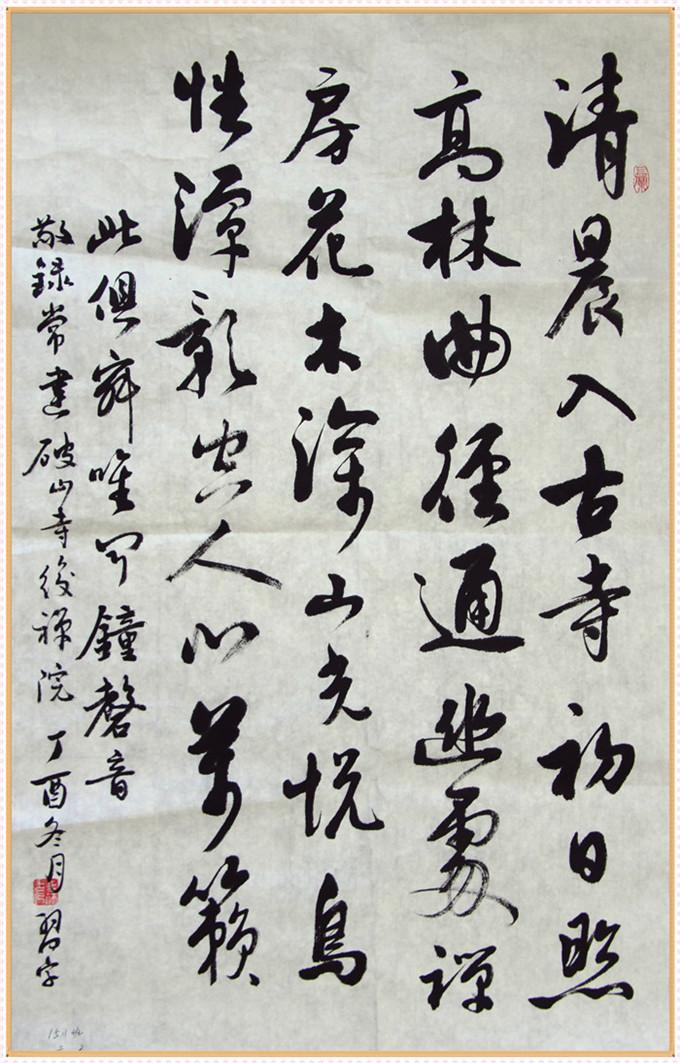 清晨入古寺初日照
高林曲径通幽處禅
房花木深山光悦鳥
性潭影空人心萬籟
此俱寂唯闻鐘磬音
敬録常建破山寺後禅院丁酉冬月習字